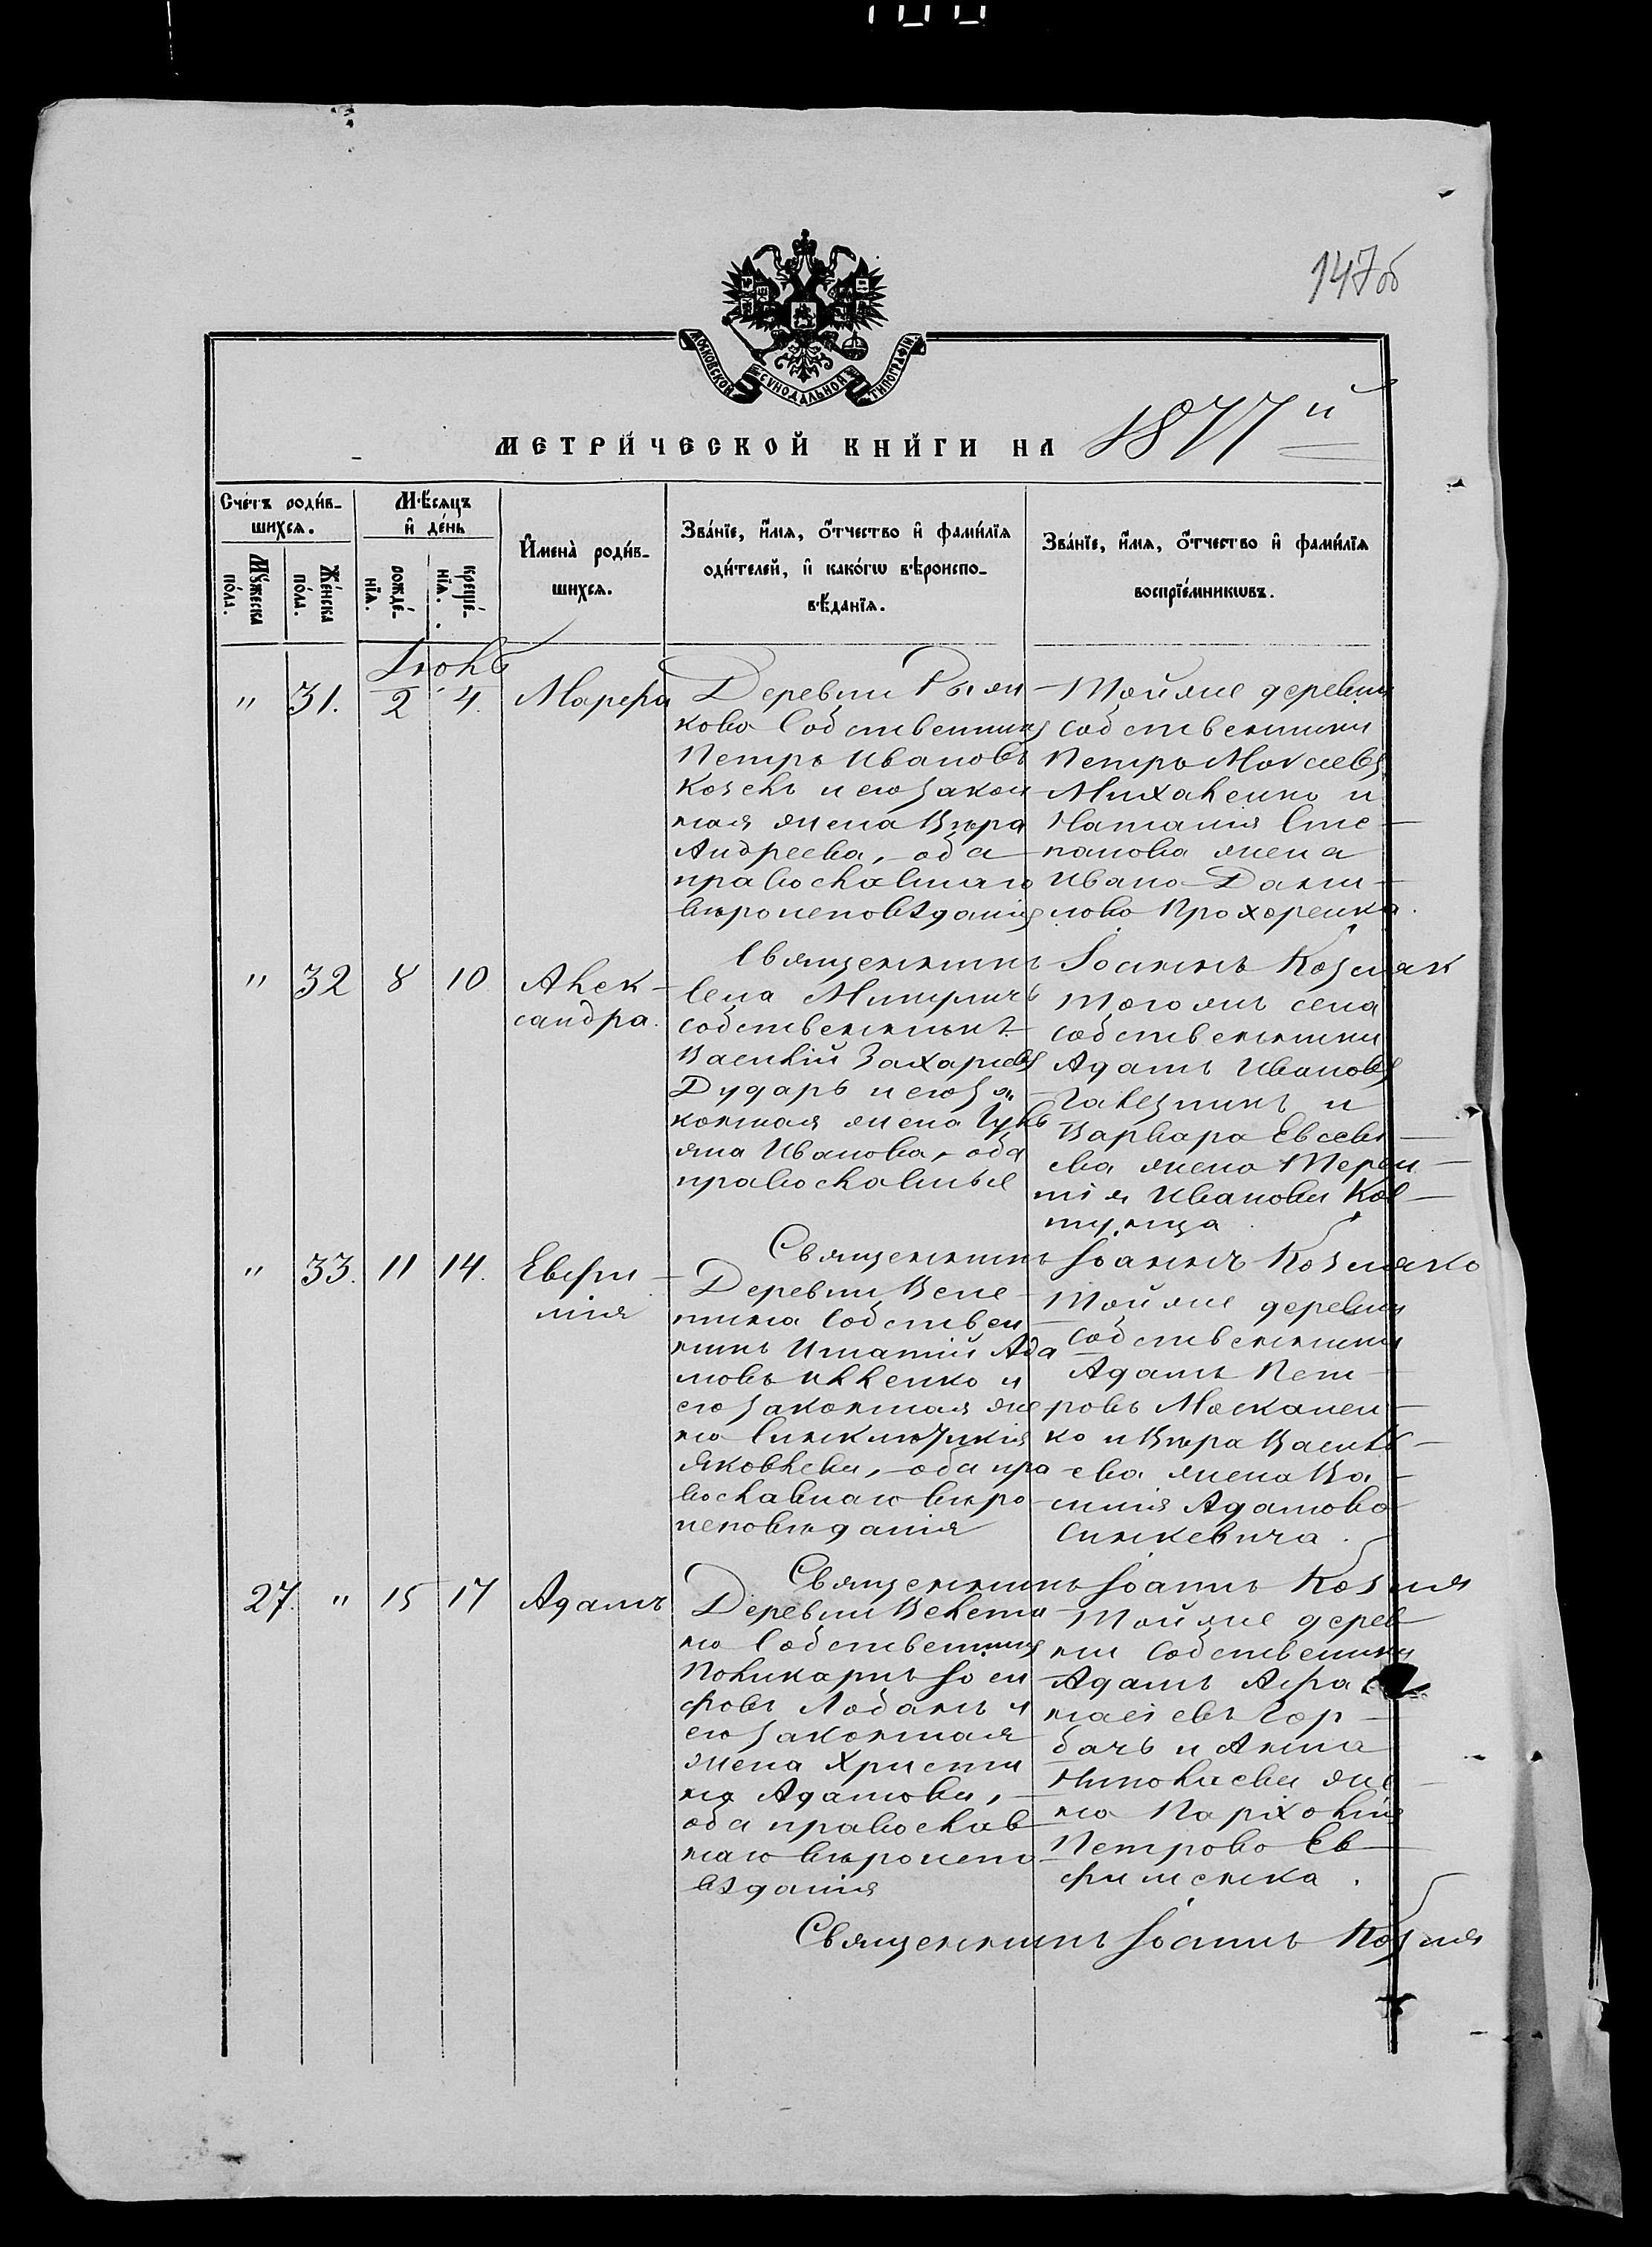 147об
МОСКОВСКОЙ СѴНОДАЛЬНОЙ ТИПОГРАФІИ
МЕТРИ́ЧЕСКОЙ КНИ́ГИ НА 1877й
Сче́тъ роди́в-
шихся.
Мꙋ́жеска
по́ла.
Же́нска
по́ла.
Мѣ́сяцъ
и҆ де́нь
рожде́-
нїя.
креще́-
нїя.
И҆мена̀ роди́в-
шихся.
Зва́нїе, и҆́мя, ѻ҆́тчество и҆ фами́лїя
роди́телей, и҆ како́гѡ вѣроиспо-
вѣ́данїя.
Зва́нїе, и҆́мя, ѻ҆́тчество и҆ фами́лїя
воспрїе́мникѡвъ.
Іюнь
" 31. 2 4. Марфа
Деревни
кова Собственникъ
Петръ Ивановъ
Козелъ и его закон
ная жена Вѣра
Андреева, оба
православнаго
вѣроисповѣданія
Той же деревни
собственники
Петръ Моисеевъ
Михаленко и
Наталія Сте-
панова жена
Ивана Дани-
лова Прохоренка.
Священникъ Іоаннъ Козляк
" 32 8 10 Алек-
сандра.
Села
собственникъ
Василій Захаріевъ
Дударь и его за
конная жена Іулі
яна Иванова, оба
православные
Того же села
собственники
Адамъ Ивановъ
и
Варвара Евсеві-
ева жена Терен-
тія Иванова Ков-
тунца.
Священникъ Іоаннъ Козляко
" 33. 11 14. Евфи-
мія
Деревни Веле-
тина Собствен-
никъ Игнатій Ада
мовъ Илленко и
его законная же
на Синклитикія
Яковлева, оба пра
вославнаго вѣро
исповѣданія
Той же деревни
собственники
Адамъ Пет-
ровъ Москален-
ко и Вѣра Василь-
ева жена Ва-
силія Адамова
Синкевича.
Священникъ Іоаннъ Козля
27. " 15 17 Адамъ
Деревни Велети
на Собственникъ
Поликарпъ Іоси
фовъ Лобанъ и
его законная
жена Христи
на Адамова,
оба православ
наго вѣроиспо
вѣданія
Той же дерев
ни Собственники
Адамъ Афа
насіевъ Гор-
бачъ и Анна
Николаева же-
на
Петрова Ев
фименка.
Священникъ Іоаннъ Козля